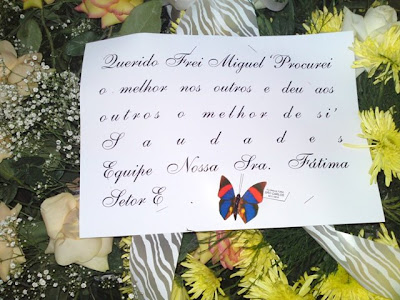 Querido Frei Miguel 'Procurei
o melhor nos outros e deu aos
outros o melhor de si'
Saudades
Equipe Nossa Sra. Fátima
Setor E .